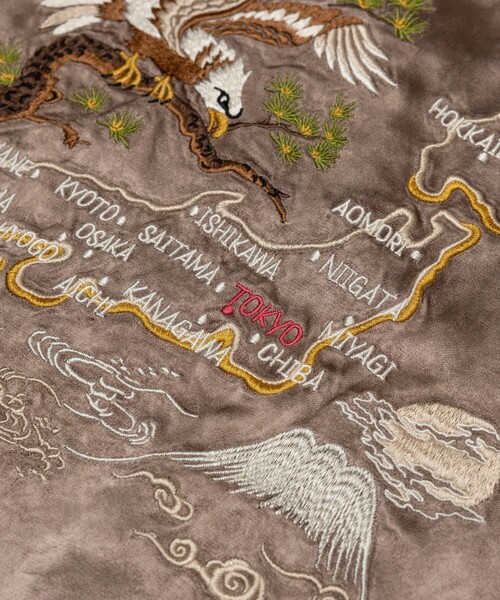 HOKKAI
AOMORI
ISHIKAWA
NIIGATA
KYOTO
SAITAMA
OSAKA
TOKYO
MIYAGI
AICHI
KANAGAWA
CHIBA